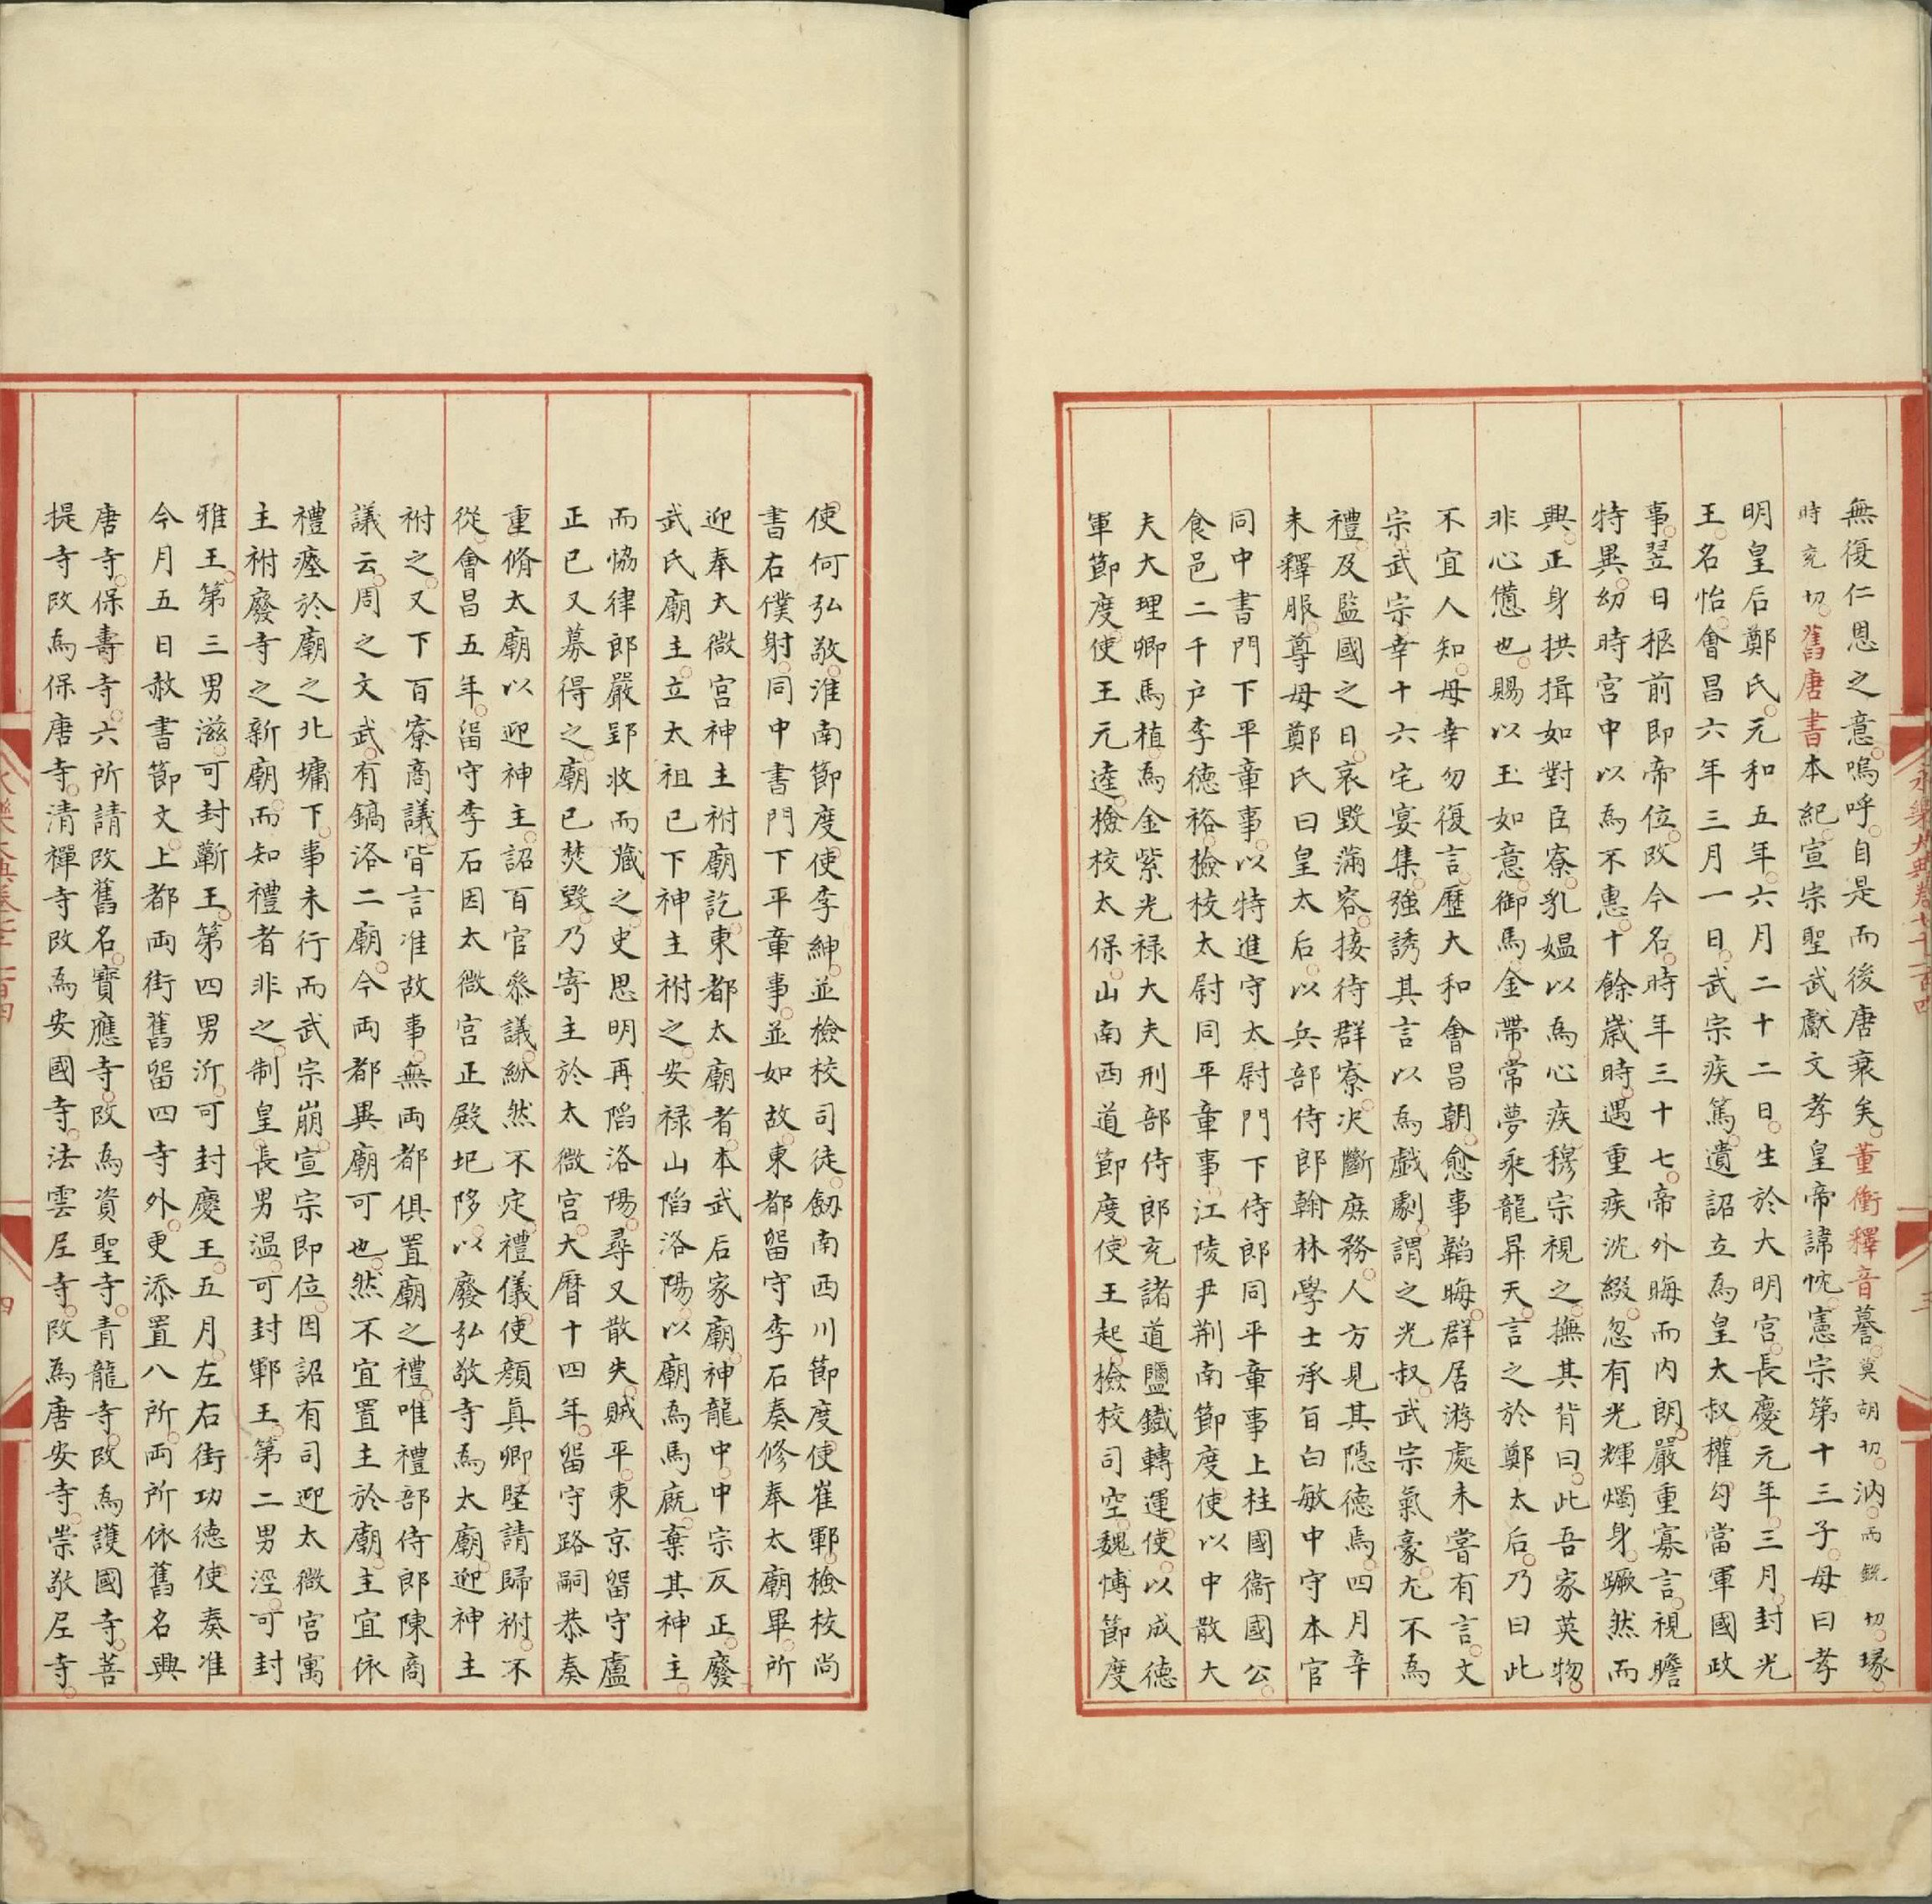 無復仁恩之意嗚呼自是而後唐衰矣董衝釋音謩莫胡切汭而銳切瑑
時兖切舊唐書本紀宣宗聖武獻文孝皇帝諱忱憲宗第十三子母曰孝
明皇后鄭氏元和五年六月二十二日生於大明宮長慶元年三月封光
王名怡會昌六年三月一日武宗疾篤遺詔立為皇太叔權勾當軍國政
事翌日柩前即帝位改今名時年三十七帝外晦而內朗嚴重寡言視瞻
特異幼時宮中以為不惠十餘歲時遇重疾沈綴忽有光輝燭身蹶然而
興正身拱揖如對臣寮乳媼以為心疾穆宗視之撫其背曰此吾家英物
非心憊也賜以玉如意御馬金帶常夢乘龍昇天言之於鄭太后乃曰此
不宜人知母幸勿復言歷大和會昌朝愈事韜晦群居游處未嘗有言文
宗武宗幸十六宅宴集強誘其言以為戲劇謂之光叔武宗氣豪尤不為
禮及監國之日哀毀滿容接待群寮决斷庶務人方見其隱德焉四月辛
未釋服尊母鄭氏曰皇太后以兵部侍郎翰林學士承旨白敏中守本官
同中書門下平章事以特進守太尉門下侍郎同平章事上柱國衞國公
食邑二千户李德裕檢校太尉同平章事江陵尹荆南節度使以中散大
夫大理卿馬植為金紫光禄大夫刑部侍郎充諸道鹽鐵轉運使以成德
軍節度使王元逵檢校太保山南西道節度使王起檢校司空魏博節度
使何弘敬淮南節度使李紳並檢校司徒劒南西川節度使崔鄲檢校尚
書右僕射同中書門下平章事並如故東都留守李石奏修奉太廟畢所
迎奉太微宮神主祔廟訖東都太廟者本武后家廟神龍中中宗反正廢
武氏廟主立太祖已下神主祔之安禄山陷洛陽以廟為馬廐棄其神主
而恊律郎嚴郢收而藏之史思明再陷洛陽尋又散失賊平東京留守盧
正已又募得之廟已焚毀乃寄主於太微宮大曆十四年留守路嗣恭奏
重脩太廟以迎神主詔百官叅議紛然不定禮儀使顔真卿堅請歸祔不
從會昌五年留守李石因太微宮正殿圮陊以廢弘敬寺為太廟迎神主
祔之又下百寮商議皆言准故事無兩都俱置廟之禮唯禮部侍郎陳商
議云周之文武有鎬洛二廟今兩都異廟可也然不宜置主於廟主宜依
禮瘞於廟之北墉下事未行而武宗崩宣宗即位因詔有司迎太微宮寓
主祔廢寺之新廟而知禮者非之制皇長男温可封鄆王第二男涇可封
雅王第三男滋可封蘄王第四男沂可封慶王五月左右街功德使奏准
今月五日赦書節文上都兩街舊留四寺外更添置八所兩所依舊名興
唐寺保壽寺六所請改舊名寶應寺改為資聖寺青龍寺改為護國寺菩
提寺改為保唐寺清禪寺改為安國寺法雲尼寺改為唐安寺崇敬尼寺